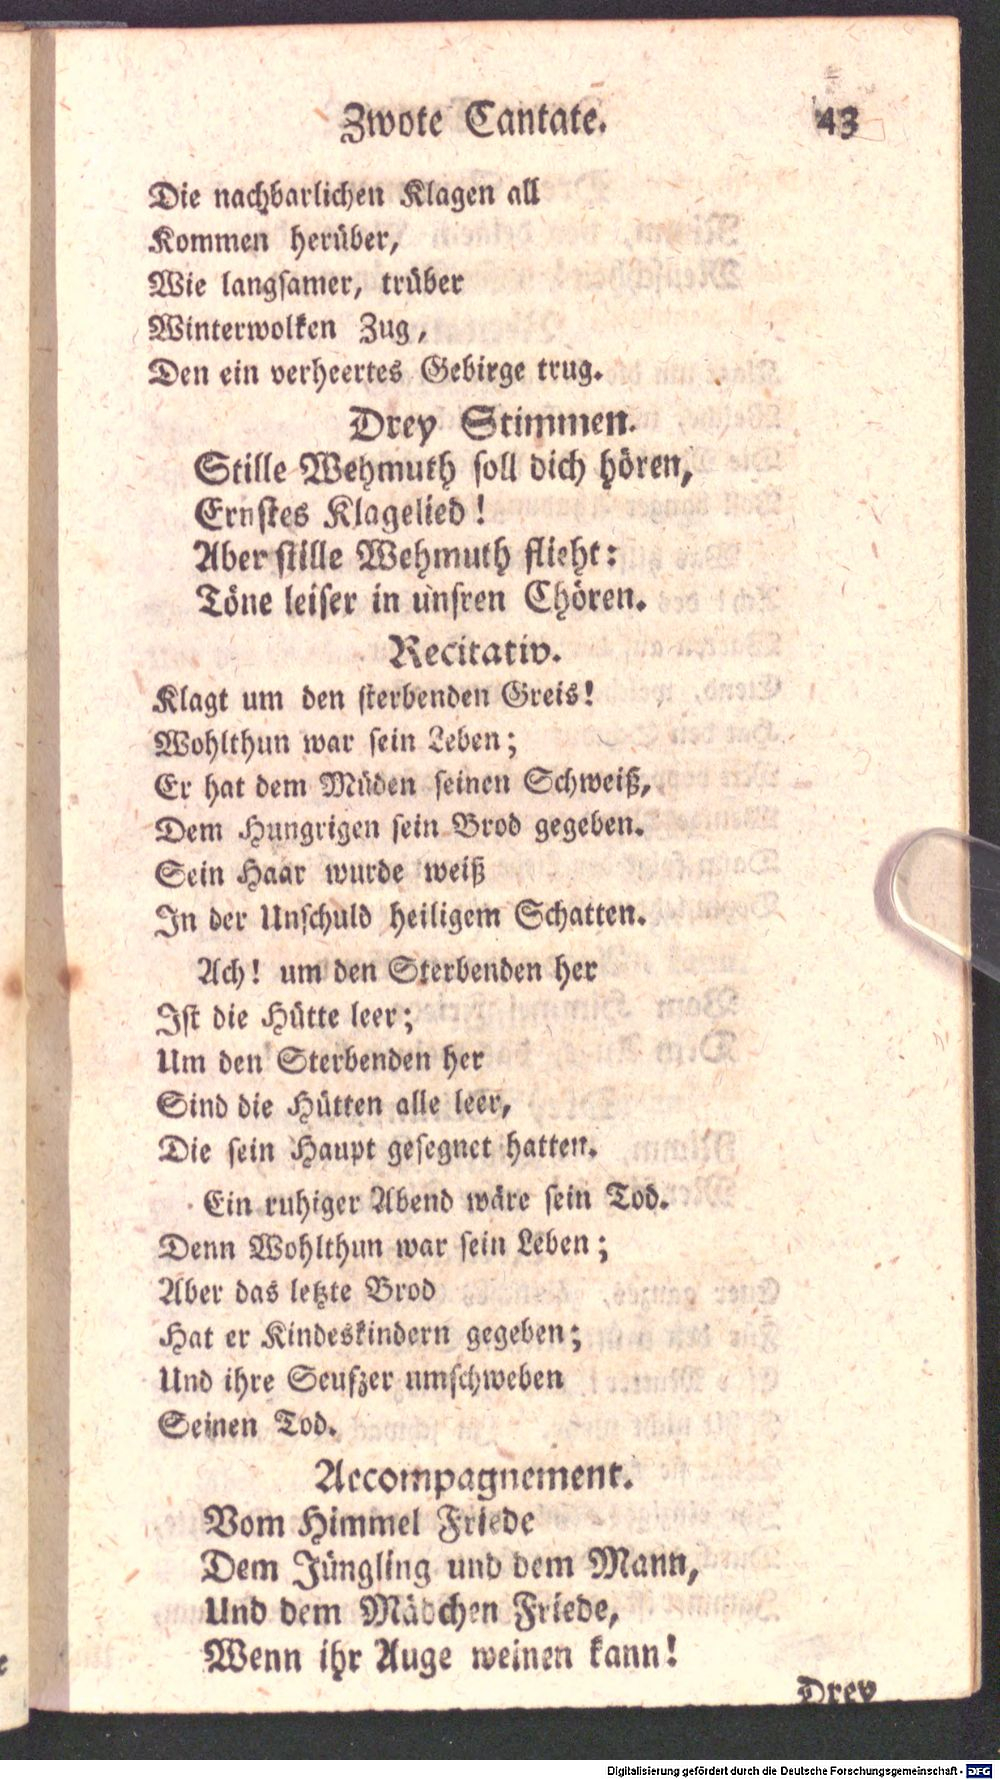 Zwote Cantate. 43
Die nachbarlichen Klagen all
Kommen herüber,
Wie langsamer, trüber
Winterwolken Zug,
Den ein verheertes Gebirge trug.
Drey Stimmen.
Stille Wehmuth soll dich hören,
Ernstes Klagelied!
Aber stille Wehmuth flieht:
Töne leiser in unsren Chören.
Recitativ.
Klagt um den sterbenden Greis!
Wohlthun war sein Leben;
Er hat dem Müden seinen Schweiß,
Dem Hungrigen sein Brod gegeben.
Sein Haar wurde weiß
In der Unschuld heiligem Schatten.
Ach! um den Sterbenden her
Ist die Hütte leer;
Um den Sterbenden her
Sind die Hütten alle leer,
Die sein Haupt gesegnet hatten.
Ein ruhiger Abend wäre sein Tod.
Denn Wohlthun war sein Leben;
Aber das letzte Brod
Hat er Kindeskindern gegeben;
Und ihre Seufzer umschweben
Seinen Tod.
Accompagnement.
Vom Himmel Friede
Dem Jüngling und dem Mann,
Und dem Mädchen Friede,
Wenn ihr Auge weinen kann!
Drey
Digitalisierung gefördert durch die Deutsche Forschungsgemeinschaft - DFG